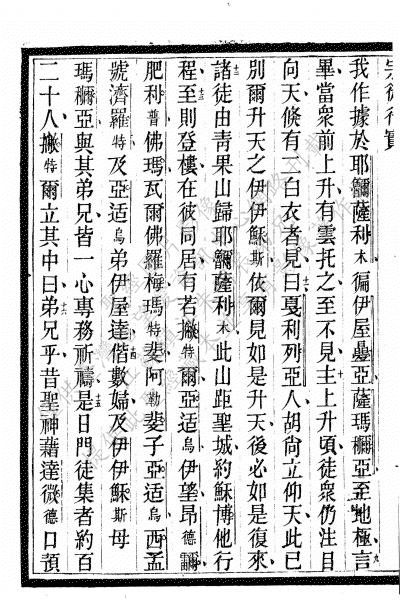 宗徒行實
我作據於耶薩利木徧伊屋疊亞薩瑪穪亞至地極言
畢當衆前上升有雲托之至不見主上升頃徒衆仍注目
向天倏有二白衣者見曰戛利列亞人胡尚立仰天此已
別爾升天之伊伊穌斯依爾見如是升天後必如是復來
諸徒由青果山歸耶薩利木此山距聖城約穌博他行
程至則登樓在彼同居有若撇特爾亞适烏伊望昂德
肥利普佛瑪瓦爾佛羅梅瑪特斐阿勒斐子亞适烏西孟
號濟羅特及亞适烏弟伊屋達偕數婦及伊伊穌斯母
瑪穪亞與其弟兄皆一心專務祈禱是日門徒集者約百
二十人撇特爾立其中曰弟兄乎昔聖神藉達微德口預